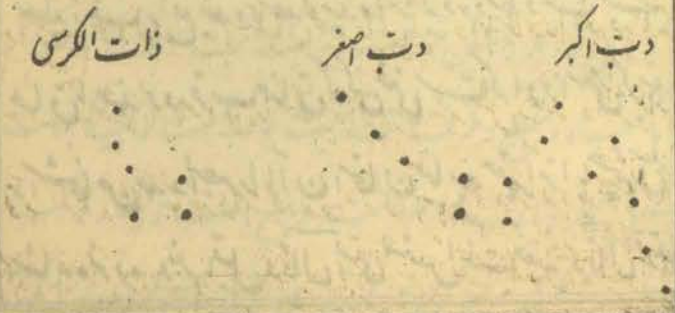 دب اکبر دب اصغر ذات الکرسی